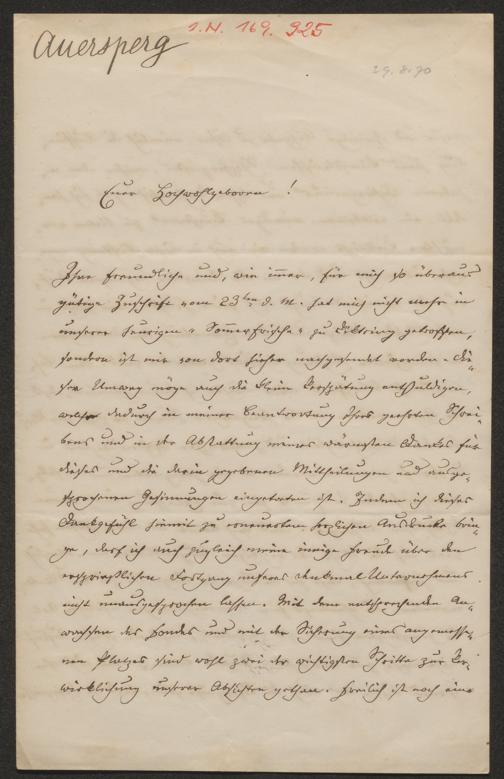 Auersperg
I.N. 169.925
29.8.70
Euer Hochwohlgeboren!
Ihre freundliche und, wie immer, für mich so überaus
gütige Zuschrift vom 23ten d. M. hat mich nicht mehr in
unserer heurigen "Sommerfrische" zu getroffen,
sondern ist mir von dort hieher nachgesendet worden. Die-
ser Umweg möge auch die kleine Verspätung entschuldigen,
welche dadurch in meiner Beantwortung Ihres geehrten Schrei-
bens und in der Abstattung meines wärmsten Dankes für
dieses und die darin gegebenen Mittheilungen und ausge-
sprochenen Gesinnungen eingetreten ist. Indem ich dieses
Dankgefühl hiemit zu erneuertem herzlichen Ausdrucke brin-
ge, darf ich auch zugleich meine innige Freude über den
ersprießlichen Fortgang unseres Denkmal Unternehmens
nicht unausgesprochen lassen. Mit dem entsprechenden An-
wachsen des Fondes und mit der Sicherung eines angemesse-
nen Platzes sind wohl zwei der wichtigsten Schritte zur Ver-
wirklichung unserer Absichten gethan. Freilich ist noch eine